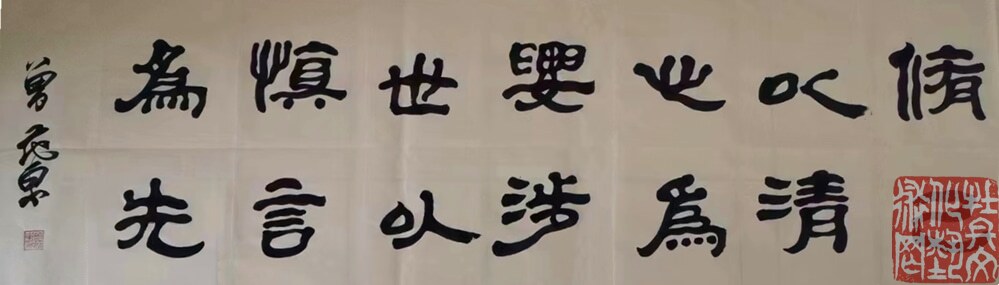 脩
以清
心為
要涉
世以
慎言
為先
曾